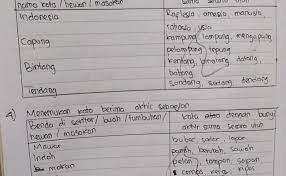 nama kota / hewan / masakan
Indonesia
Rafflesia, amnesia, manusia,
rahasia, usia
Capung
kampung, lampung, mengapung
pelampung, tepung
Bintang
kentang, binatang, datang
batang
Tendang
sandang, sedang, dendang
4) Menemukan kata berima akhir sebagian
Benda di sekitar / buah / tumbuhan /
hewan / masakan
kata dengan bunyi
akhir sama separo utuh
Mawar
bubar, solar, lapar
Indah
panah, berubah, sawah
makan
pelan, tampan, sopan
kapas